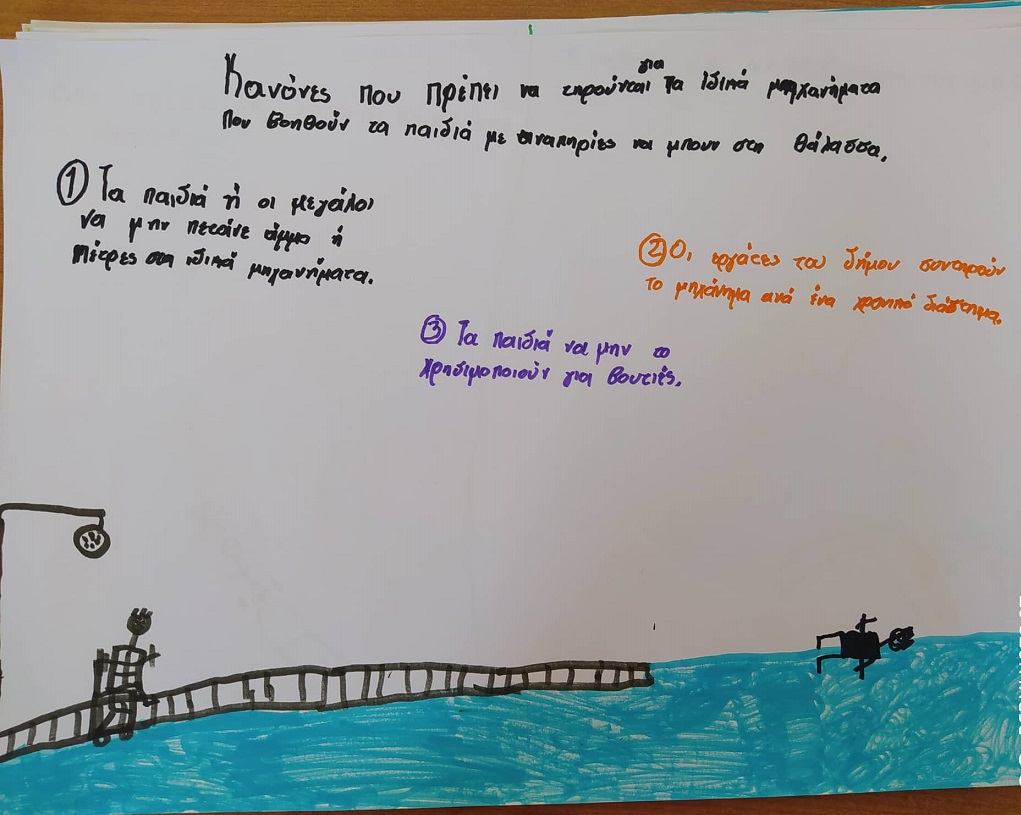 Κανόνες που πρέπει να τηρούνται για τα ιδικά μηχανήματα
που βοηθούν τα παιδιά με αναπηρίες να μπουν στη θάλασσα.
① Τα παιδιά ή οι μεγάλοι
να μην πετάνε άμμο ή
πέτρες στα ιδικά μηχανήματα.
② Οι εργάτες του δήμου συντηρούν
το μηχάνημα ανά ένα χρονικό διάστημα.
③ Τα παιδιά να μην το
χρησιμοποιούν για βουτιές.